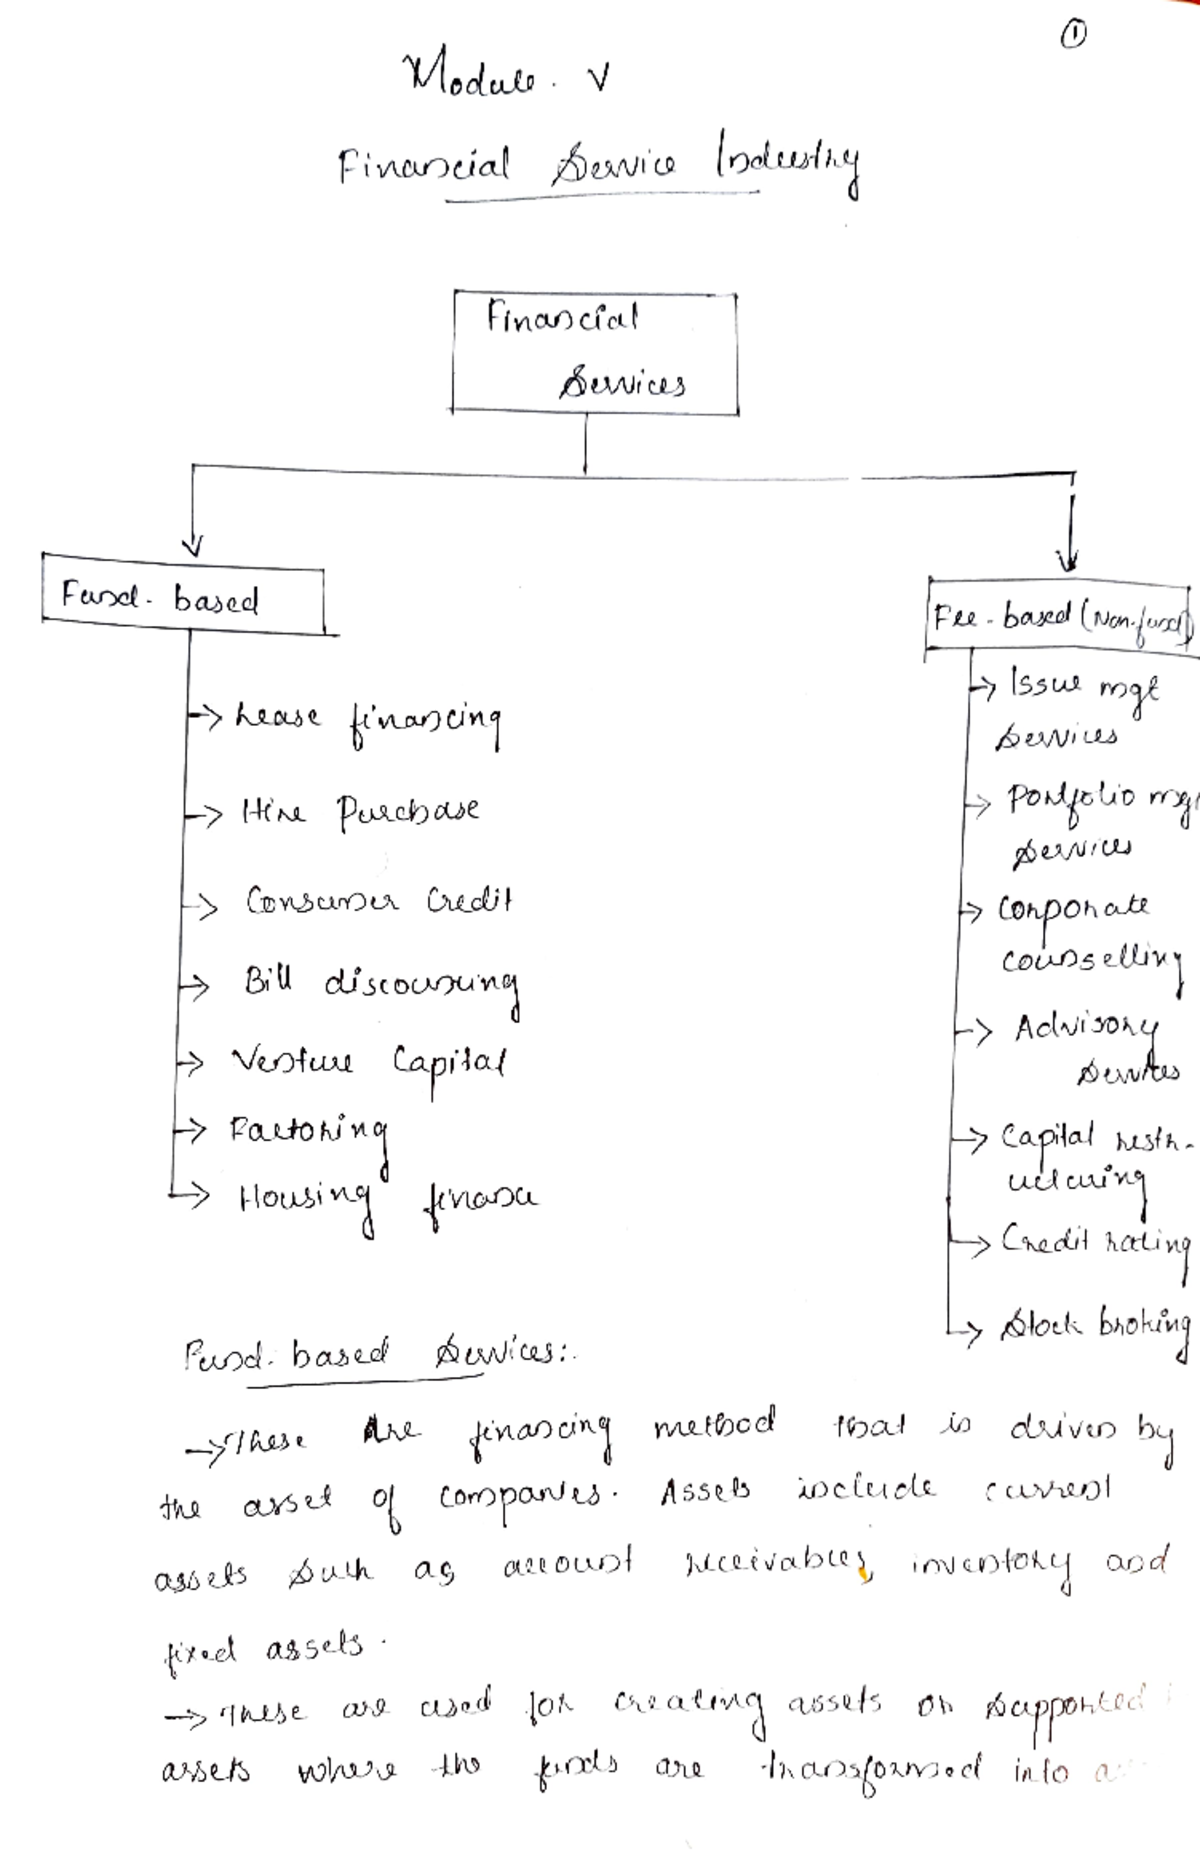 ①
Module. V
Financial Service Industry
Financial
Services
Fund-based
Fee-based (Non-fund)
→ Lease financing
→ Hire Purchase
→ Consumer Credit
→ Bill discounting
→ Venture Capital
→ Factoring
→ Housing finance
→ Issue mgt
services
→ Portfolio mgt
services
→ Corporate
counselling
→ Advisory
services
→ Capital restr-
ucturing
→ Credit rating
→ Stock broking
Fund-based Services:.
→ These are financing method that is driven by
the asset of companies. Assets include current
assets such as account receivables, inventory and
fixed assets.
→ These are used for creating assets or supported
assets where the funds are transformed into